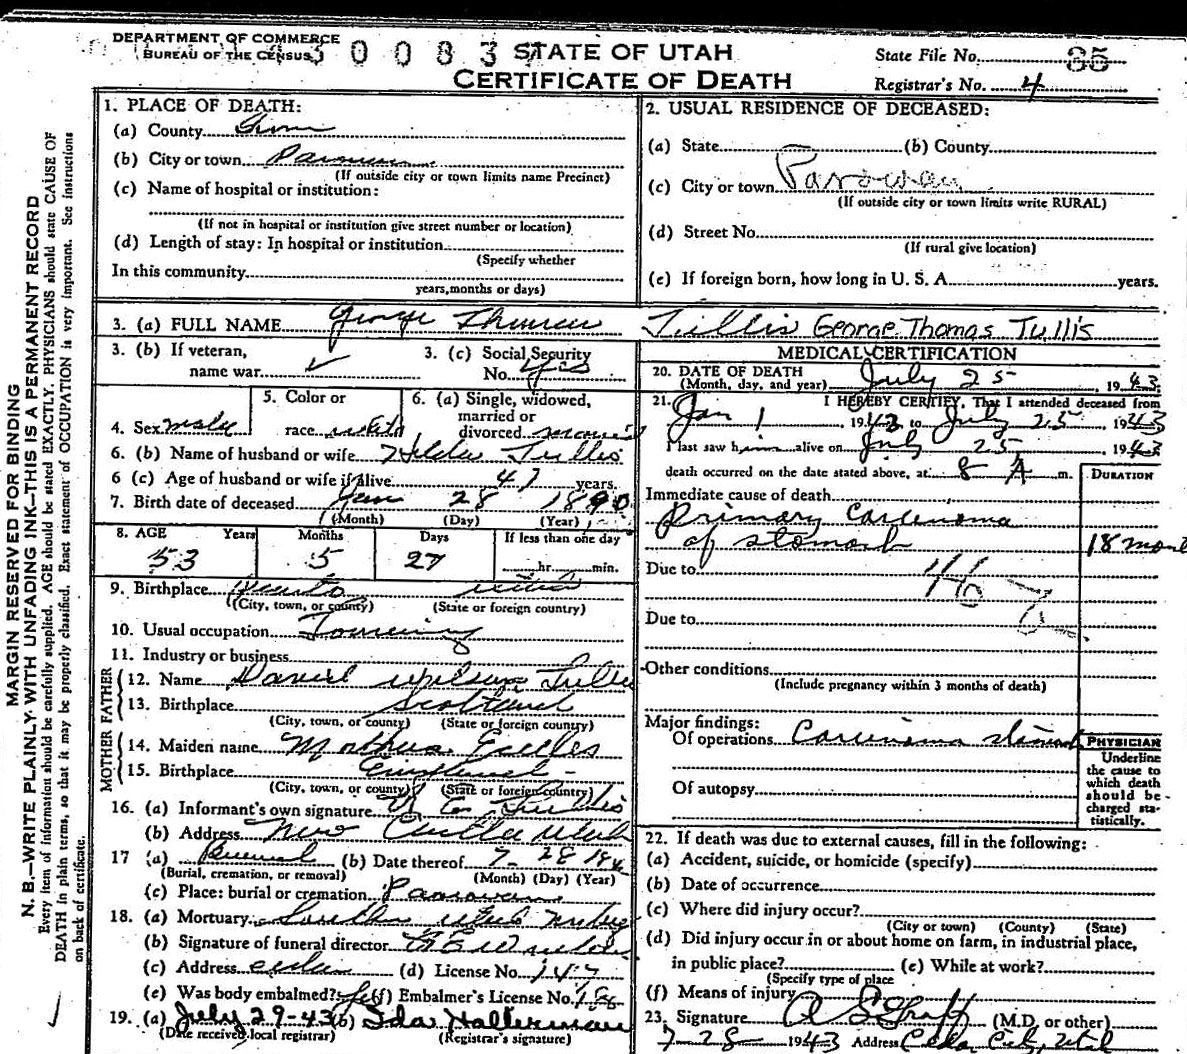 DEPARTMENT OF COMMERCE
BUREAU OF THE CENSUS
STATE OF UTAH
CERTIFICATE OF DEATH
State File No. 85
Registrar's No. 4
MARGIN RESERVED FOR BINDING
N. B.—WRITE PLAINLY, WITH UNFADING INK—THIS IS A PERMANENT RECORD
Every item of information should be carefully supplied. AGE should be stated EXACTLY. PHYSICIANS should state CAUSE OF
DEATH in plain terms, so that it may be properly classified. Exact statement of OCCUPATION is very important. See instructions
on back of certificate.
1. PLACE OF DEATH:
(a) County
(b) City or town
(If outside city or town limits name Precinct)
(c) Name of hospital or institution:
(If not in hospital or institution give street number or location)
(d) Length of stay: In hospital or institution
(Specify whether
In this community
years, months or days)
2. USUAL RESIDENCE OF DECEASED:
(a) State (b) County
(c) City or town Parowan
(If outside city or town limits write RURAL)
(d) Street No.
(If rural give location)
(e) If foreign born, how long in U. S. A. years.
3. (a) FULL NAME George Thomas Tullis George Thomas Tullis
3. (b) If veteran,
name war
3. (c) Social Security
No. yes
4. Sex male
5. Color or
race white
6. (a) Single, widowed,
married or
divorced married
6. (b) Name of husband or wife Hilda Tullis
6 (c) Age of husband or wife if alive 41 years.
7. Birth date of deceased Jan 28 1890
(Month) (Day) (Year)
8. AGE Years Months Days If less than one day
53 5 27 hr. min.
9. Birthplace Pinto Utah
(City, town, or county) (State or foreign country)
10. Usual occupation
11. Industry or business
FATHER
12. Name David Wilson Tullis
13. Birthplace Scotland
(City, town, or county) (State or foreign country)
MOTHER
14. Maiden name Martha Eccles
15. Birthplace England
(City, town, or county) (State or foreign country)
16. (a) Informant's own signature Tullis
(b) Address New Castle Utah
17 (a) Burial (b) Date thereof 7-28
(Burial, cremation, or removal) (Month) (Day) (Year)
(c) Place: burial or cremation Parowan
18. (a) Mortuary Southern Utah
(b) Signature of funeral director
(c) Address Cedar (d) License No. 147
(e) Was body embalmed? yes (f) Embalmer's License No.
19. (a) July 29-43 (b) Ida Halterman
(Date received local registrar) (Registrar's signature)
MEDICAL CERTIFICATION
20. DATE OF DEATH
(Month, day, and year) July 25, 1943
21. I HEREBY CERTIFY, That I attended deceased from
Jan 1, 1943 to July 25 1943
I last saw him alive on July 25, 1943
death occurred on the date stated above, at 8 A m.
DURATION
Immediate cause of death
Primary Carcinoma
of stomach 18 mont
Due to
Due to
Other conditions
(Include pregnancy within 3 months of death)
Major findings:
Of operations Carcinoma stomach
Of autopsy
PHYSICIAN
Underline
the cause to
which death
should be
charged sta-
tistically.
22. If death was due to external causes, fill in the following:
(a) Accident, suicide, or homicide (specify)
(b) Date of occurrence
(c) Where did injury occur?
(City or town) (County) (State)
(d) Did injury occur in or about home on farm, in industrial place,
in public place? (e) While at work?
(Specify type of place
(f) Means of injury
23. Signature (M.D. or other)
7-28 1943 Address Cedar City, Utah